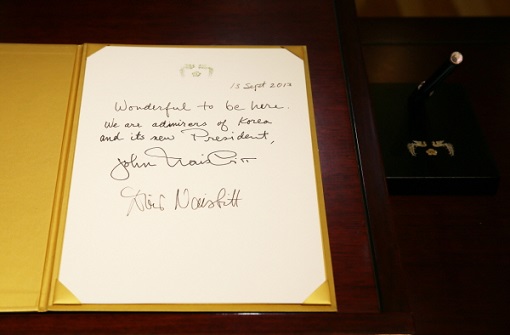 13 Sept 2013
Wonderful to be here.
We are admirers of Korea
and its new President,
John Naisbitt
Doris Naisbitt